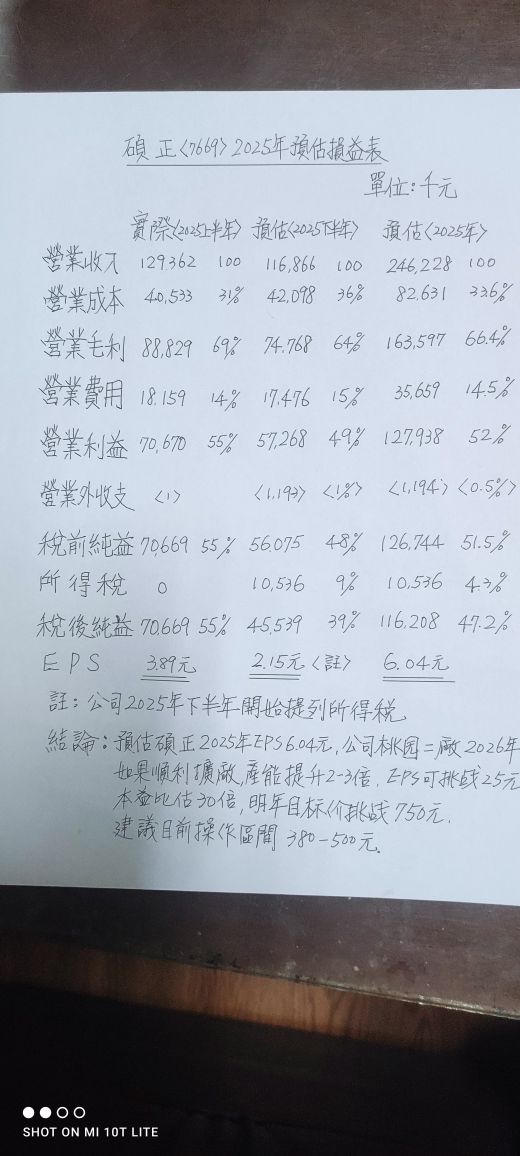 碩正<7669>2025年預估損益表
單位:千元
實際<2025上半年> 預估<2025下半年> 預估<2025年>
營業收入 129,362 100 116,866 100 246,228 100
營業成本 40,533 31% 42,098 36% 82,631 33.6%
營業毛利 88,829 69% 74,768 64% 163,597 66.4%
營業費用 18,159 14% 17,476 15% 35,659 14.5%
營業利益 70,670 55% 57,268 49% 127,938 52%
營業外收支 <1> <1,193> <1%> <1,194> <0.5%>
稅前純益 70,669 55% 56,075 48% 126,744 51.5%
所得稅 0 10,536 9% 10,536 4.3%
稅後純益 70,669 55% 45,539 39% 116,208 47.2%
EPS 3.89元 2.15元<註> 6.04元
註:公司2025年下半年開始提列所得稅
結論:預估碩正2025年EPS 6.04元,公司桃园二廠2026年
如果順利擴廠,產能提升2-3倍,EPS可挑战25元
本益比估30倍,明年目标价挑战750元.
建議目前操作區間 380-500元.
SHOT ON MI 10T LITE